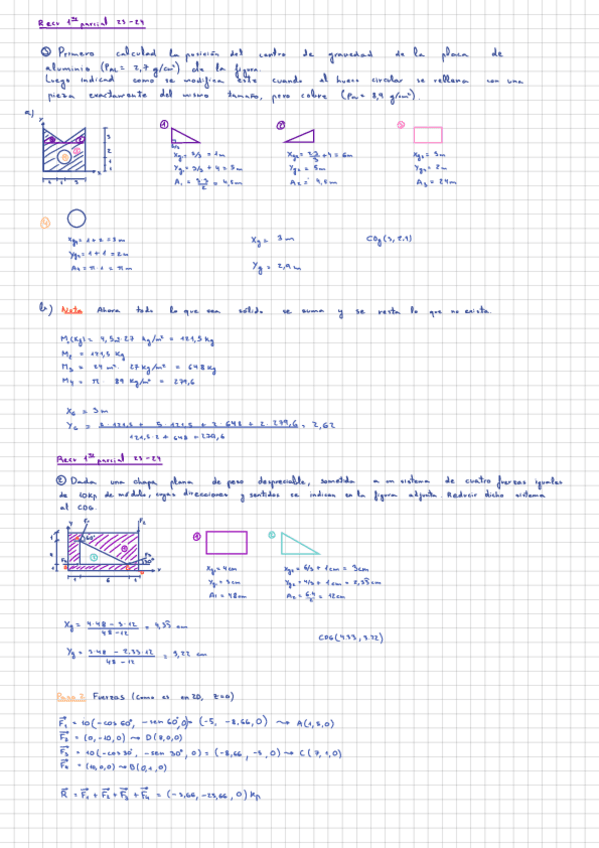 Recu 1er parcial 23-24
① Primero calculad la posición del centro de gravedad de la placa de
aluminio (ρAL = 2,7 g/cm²) de la figura.
Luego indicad como se modifica este cuando el hueco circular se rellena con una
pieza exactamente del mismo tamaño, pero cobre (8,9 g/cm²).
a)
① ② ③
Xg = 3/3 = 1m
Yg = 3/3 + 4 = 5m
A1 = 3·3/2 = 4,5m
Yg2 = 5m
A2 = 4,5m
Xg3 = 3m
Yg3 = 2m
A3 = 24m
④
Xg4 = 1+2 = 3m
Yg4 = 1+1 = 2m
A4 = π·1 = πm
Xg = 3m
Yg = 2,9m
b) Nota Ahora todo lo que sea sólido se suma y se resta lo que no exista.
M1(Kg) = 4,5m² 27 kg/m² = 121,5 Kg
M2 = 121,5 Kg
M3 = 24 m² · 27 Kg/m² = 648 Kg
M4 = π · 89 Kg/m² = 279,6
XG = 3m
YG = = 2,62
Recu 1er parcial 23-24
② Dada una chapa plana de peso despreciable, sometida a un sistema de cuatro fuerzas iguales
de 10Kp de módulo, cuyas direcciones y sentidos se indican en la figura adjunta. Reducir dicho sistema
al CDG.
① ②
Xg1 = 4cm
Yg1 = 3cm
A1 = 48cm
Xg2 = 6/3 + 1cm = 3cm
Yg2 = 4/3 + 1cm = 2,33cm
A2 = 6·4/2 = 12cm
Xg = 4·48 - 3·12 / 48-12 = 4,33 cm
Yg = 3·48 - 2,33·12 / 48-12 = 3,22 cm
CDG(4.33, 3.22)
Paso 2 Fuerzas (como es en 2D, z=0)
F1 = 10(-cos 60°, -sen 60°, 0) = (-5, -8,66, 0)
F2 = (0, -10, 0) → D(8,0,0)
F3 = 10(-cos 30°, -sen 30°, 0) = (-8,66, -5, 0) → C(7,1,0)
F4 = (10,0,0) → B(0,1,0)
R = F1 + F2 + F3 + F4 = (-3,66, -23,66, 0) Kp